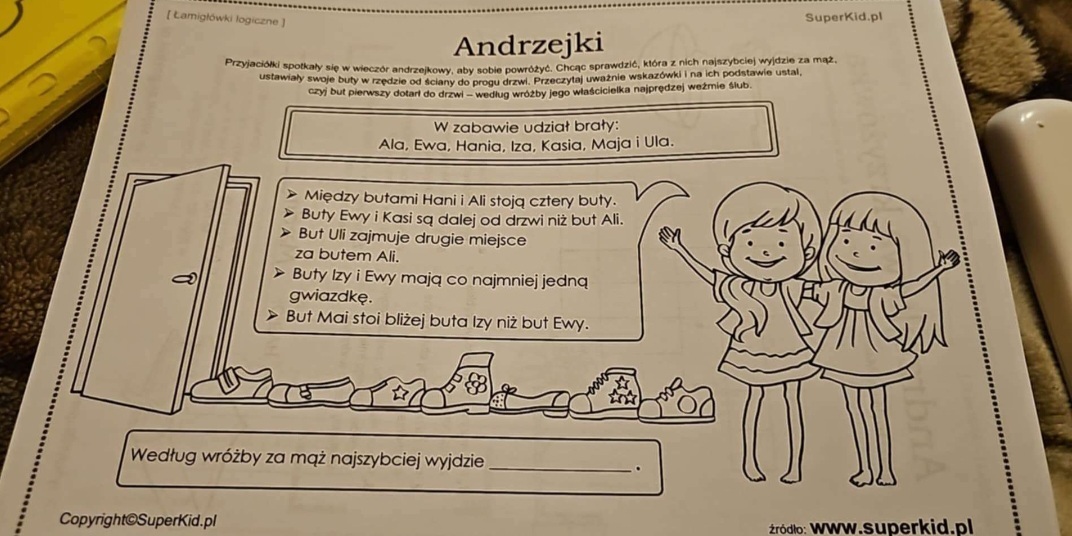 [ Łamigłówki logiczne ]
SuperKid.pl
Andrzejki
Przyjaciółki spotkały się w wieczór andrzejkowy, aby sobie powróżyć. Chcąc sprawdzić, która z nich najszybciej wyjdzie za mąż,
ustawiały swoje buty w rzędzie od ściany do progu drzwi. Przeczytaj uważnie wskazówki i na ich podstawie ustal,
czyj but pierwszy dotarł do drzwi – według wróżby jego właścicielka najprędzej weźmie ślub.
W zabawie udział brały:
Ala, Ewa, Hania, Iza, Kasia, Maja i Ula.
➢ Między butami Hani i Ali stoją cztery buty.
➢ Buty Ewy i Kasi są dalej od drzwi niż but Ali.
➢ But Uli zajmuje drugie miejsce
za butem Ali.
➢ Buty Izy i Ewy mają co najmniej jedną
gwiazdkę.
➢ But Mai stoi bliżej buta Izy niż but Ewy.
Według wróżby za mąż najszybciej wyjdzie ______________ .
Copyright©SuperKid.pl
źródło: www.superkid.pl